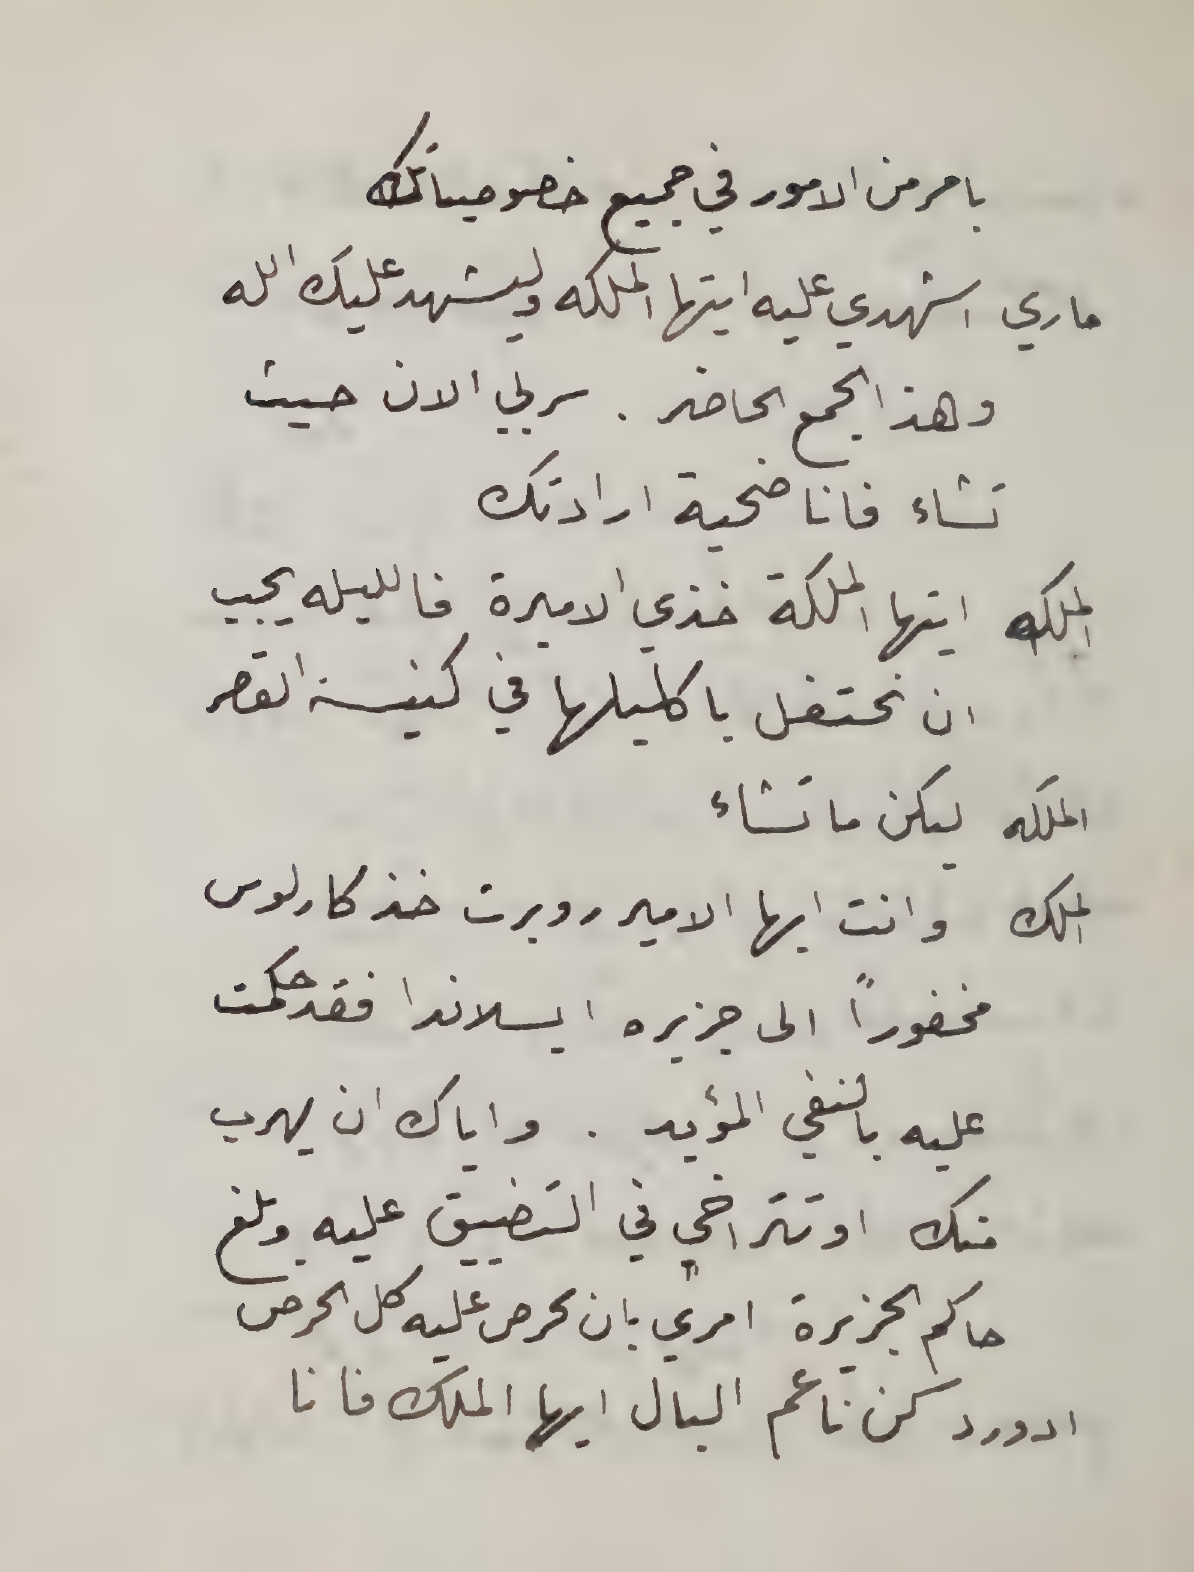 بامر من الامور في جميع خصوصياتك
ماري اشهدي عليه ايتها الملكه وليشهد عليك الله
وهذا الجمع الحاضر . سر بي الان حيث
تشاء فانا ضحية ارادتك
الملك ايتها الملكة خذي الاميرة فالليله يجب
ان نحتفل باكليلها في كنيسة القصر
الملكه ليكن ما تشاء
الملك وانت ايها الامير روبرت خذ كارلوس
مخفوراً الى جزيره ايسلاندا فقد حكمت
عليه بالنفي المؤبد . واياك ان يهرب
منك او تتراخى في التضييق عليه وبلغ
حاكم الجزيرة امري بان يحرص عليه كل الحرص
ادورد كن ناعم البال ايها الملك فانا